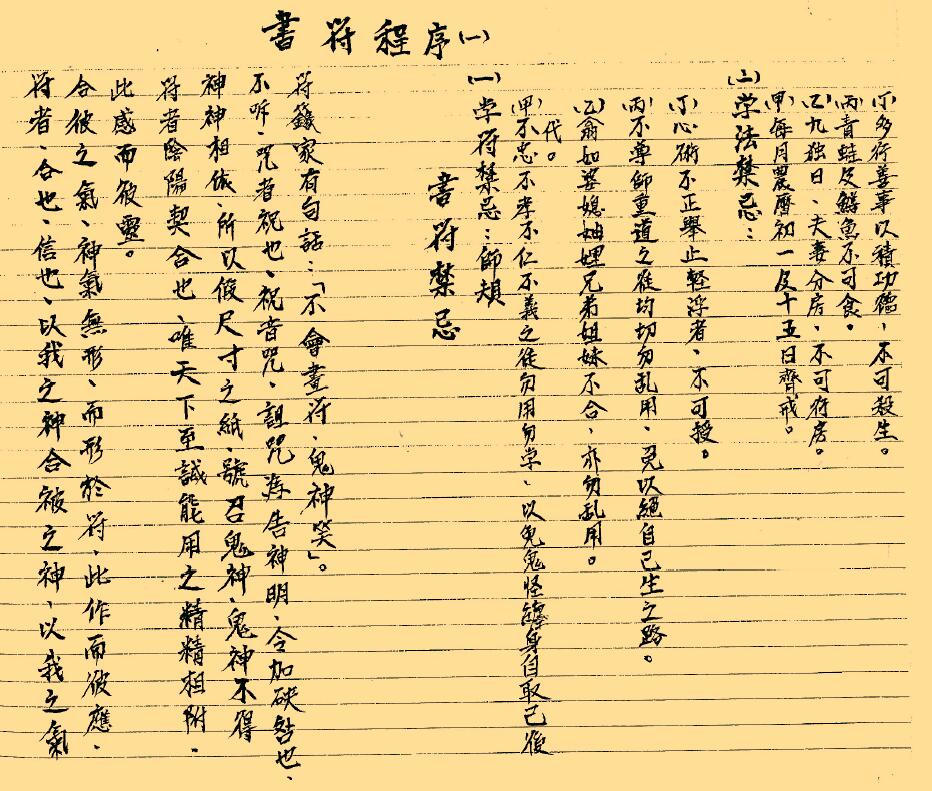 書符程序(一)
符者、合也、信也、以我之神合被之神、以我之氣
合彼之氣、神氣無形、而形於符、此作而彼應、
此感而彼靈。
符者陰陽契合也、唯天下至誠能用之精精相附.
神神相依、所以假尺寸之紙、號召鬼神、鬼神不得
不、咒者祝也、祝者咒、詛咒告神明、令加殃咎也、
符籙家有句話:「不會畫符、鬼神笑」。
書符禁忌
(一)学符禁忌:師規
(甲)不忠不孝不仁不義之徒勿用勿学、以免鬼怪纏身自取己後
代。
(乙)翁如婆媳妯娌兄弟姐妹不合,亦勿乱用。
(丙)不尊師重道之徒均切勿乱用、免以絕自己生之路。
(丁)心術不正舉止輕浮者、不可授。
(二)学法禁忌:
(甲)每月農曆初一及十五日齊戒。
(乙)九独日、夫妻分房、不可行房。
(丙)青蛙及鱔魚不可食。
(丁)多行善事以積功德,不可殺生。